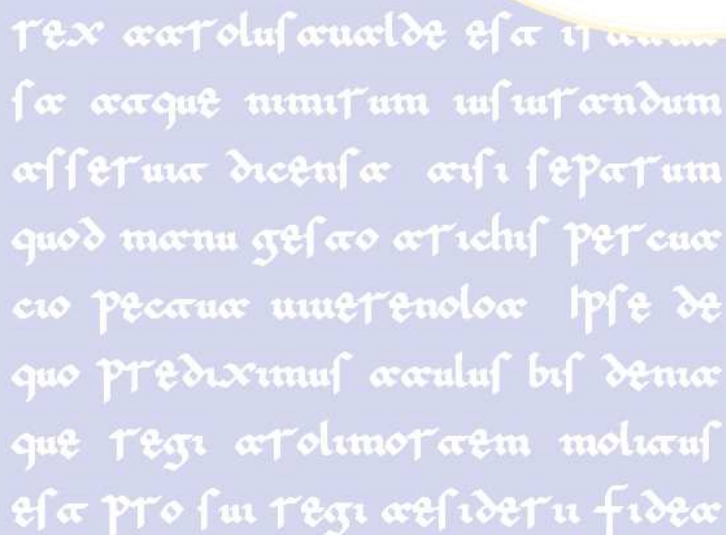 rex aarolusaualde est
sa atque nimirum iusiurandum
asseruit dicensa aisi septrum
quod manu gesto arichis percua
cio pectua uiuerenoloa Ipse de
quo prediximus aaulus bis denia
que regi arolimortem molitus
est pro sui regi aesiderii fidea